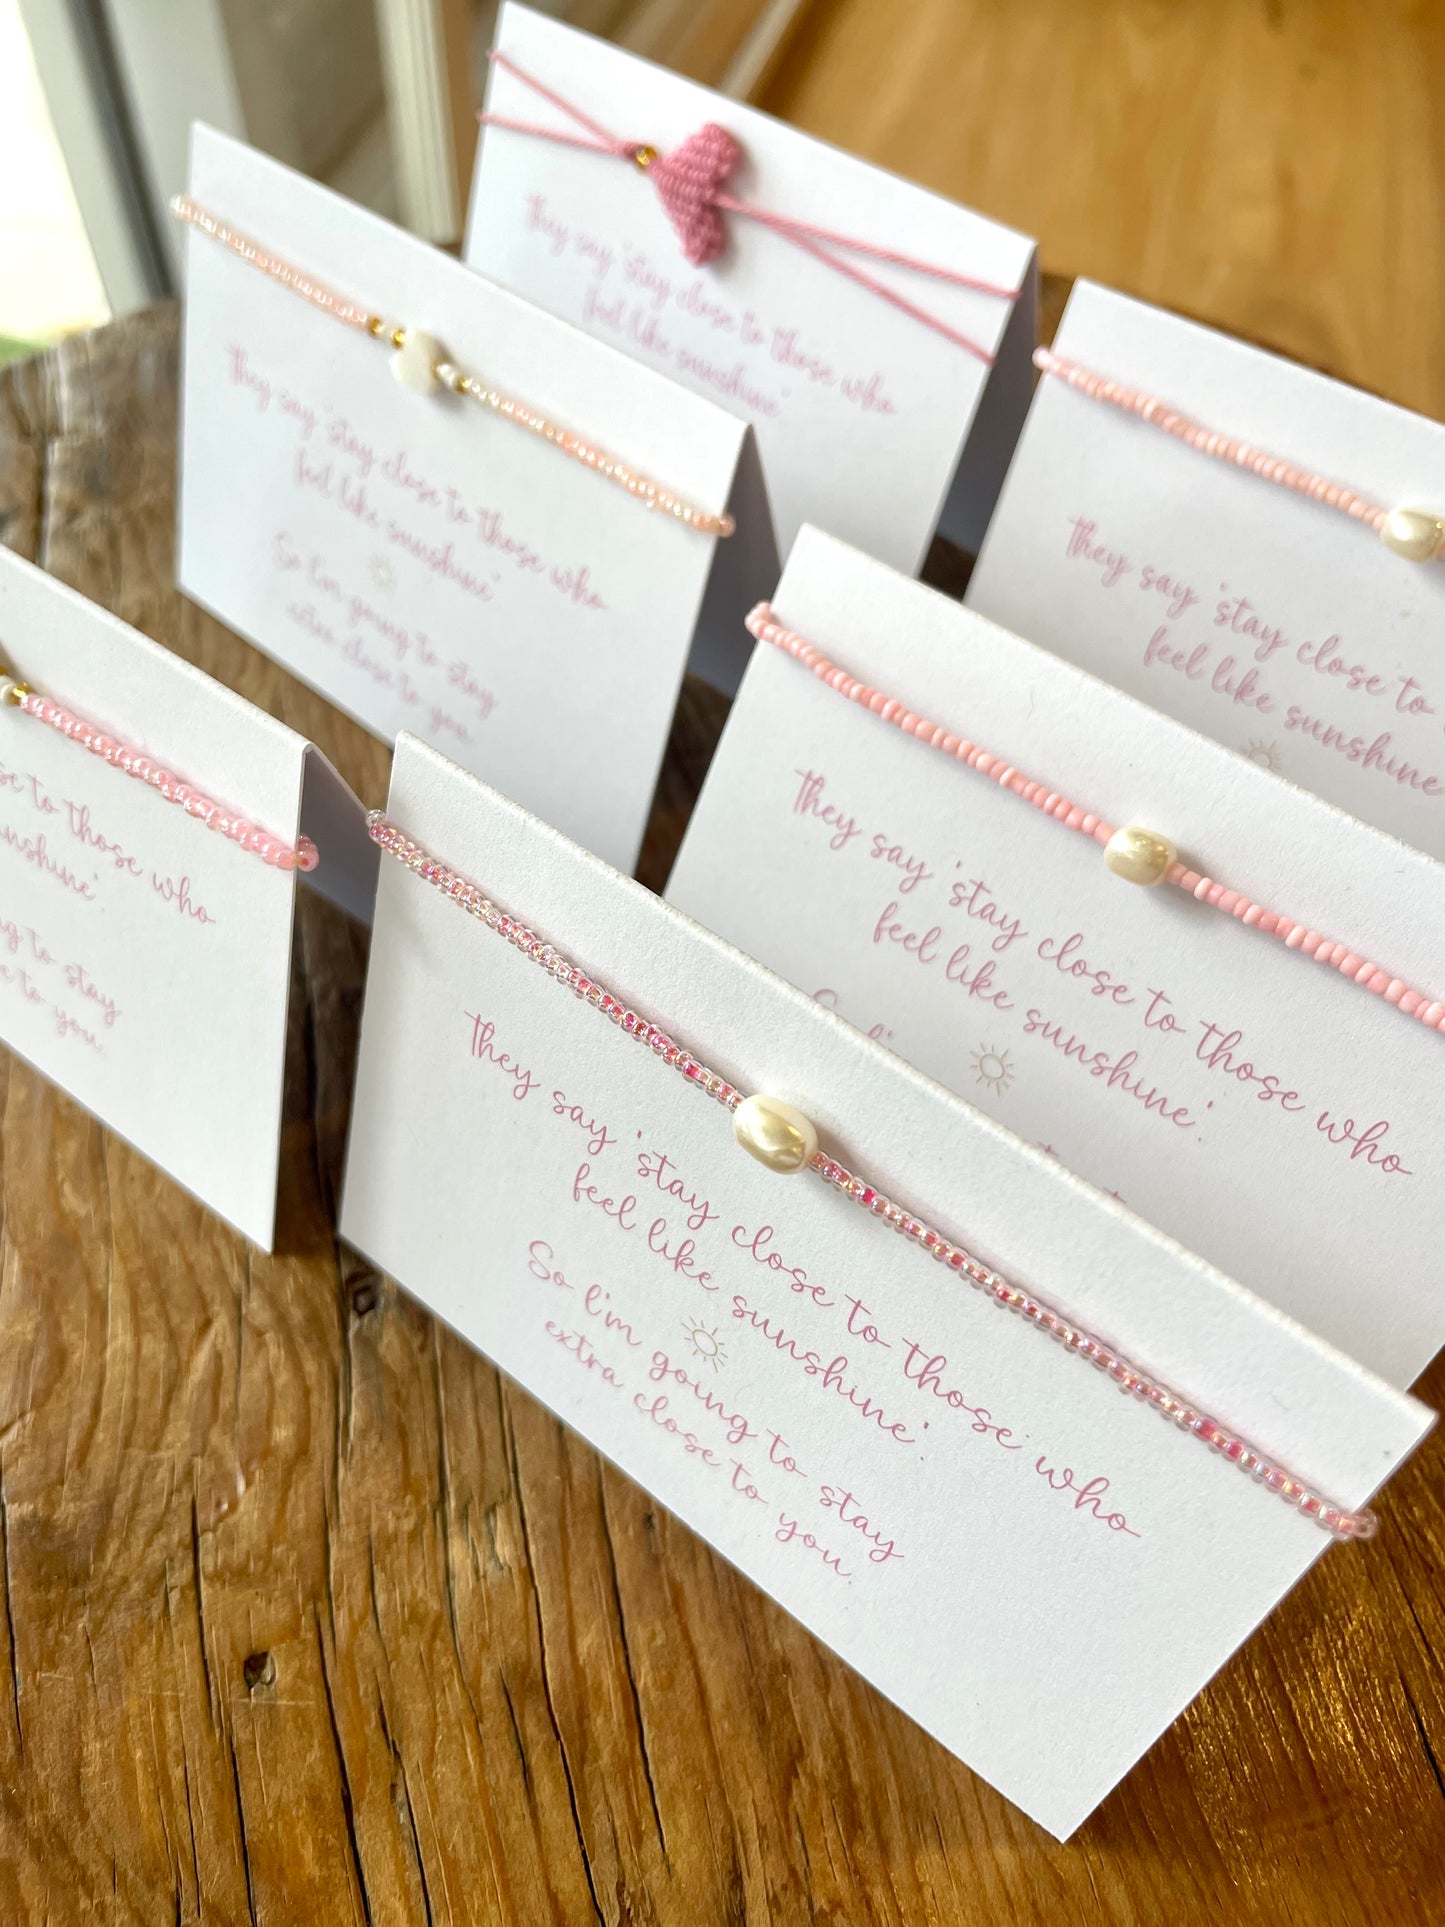 They say 'stay close to those who
feel like sunshine'
They say 'stay close to those who
feel like sunshine'
So I'm going to stay
extra close to you.
They say 'stay close to
feel like sunshine
They say 'stay close to those who
feel like sunshine'.
to those who
sunshine'
to stay
to you.
They say 'stay close to those who
feel like sunshine'.
So I'm going to stay
extra close to you.